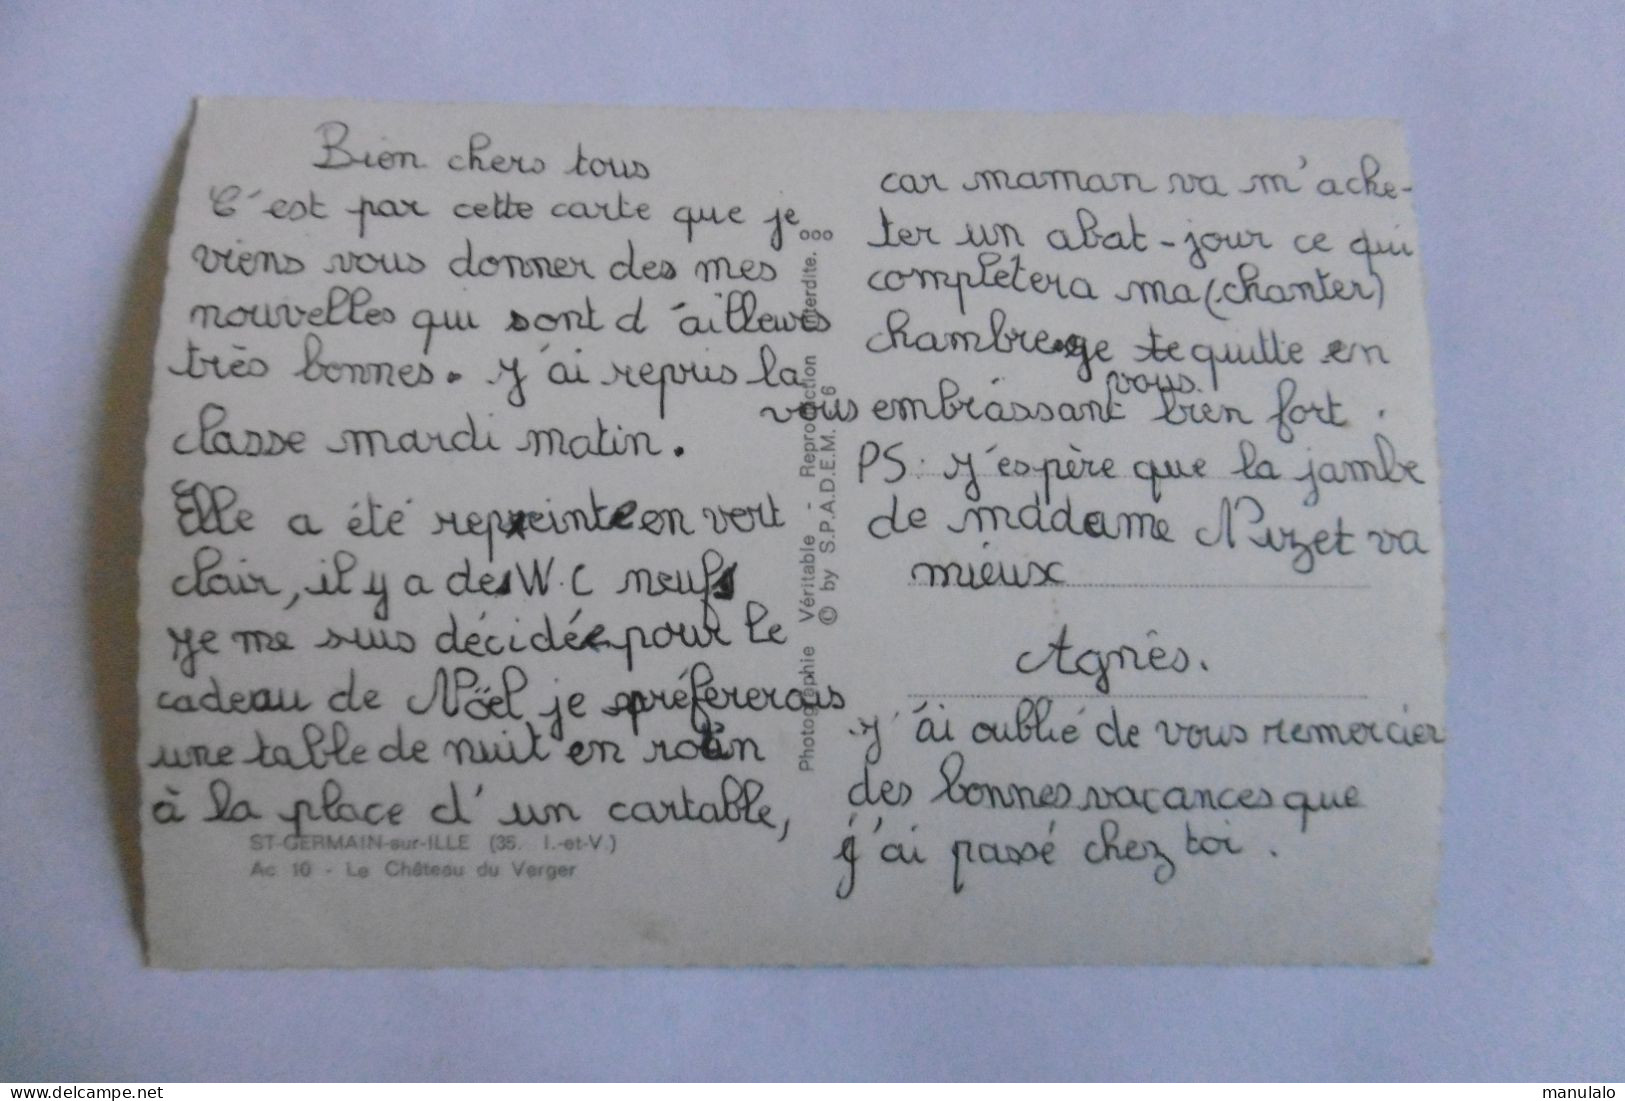 Bien chers tous
C'est par cette carte que je...
viens vous donner des mes
nouvelles qui sont d'ailleurs
très bonnes. J'ai repris la
classe mardi matin.
Elle a été repeinte en vert
clair, il y a des W.C neufs
Je me suis décidée pour le
cadeau de Nöel je préfererais
une table de nuit en rotin
à la place d'un cartable,
ST-GERMAIN-sur-ILLE (35. I.-et-V.)
Ac 10 - Le Château du Verger
Photographie Véritable - Reproduction interdite.
© by S.P.A.D.E.M. 6
car maman va m'ache-
ter un abat-jour ce qui
complètera ma (chanter)
chambre. Je te quitte en
vous.
vous embrassant bien fort.
PS: J'espère que la jambe
de madame Nizet va
mieux
Agnès.
J'ai oublié de vous remercier
des bonnes vacances que
j'ai passé chez toi.
manulalo